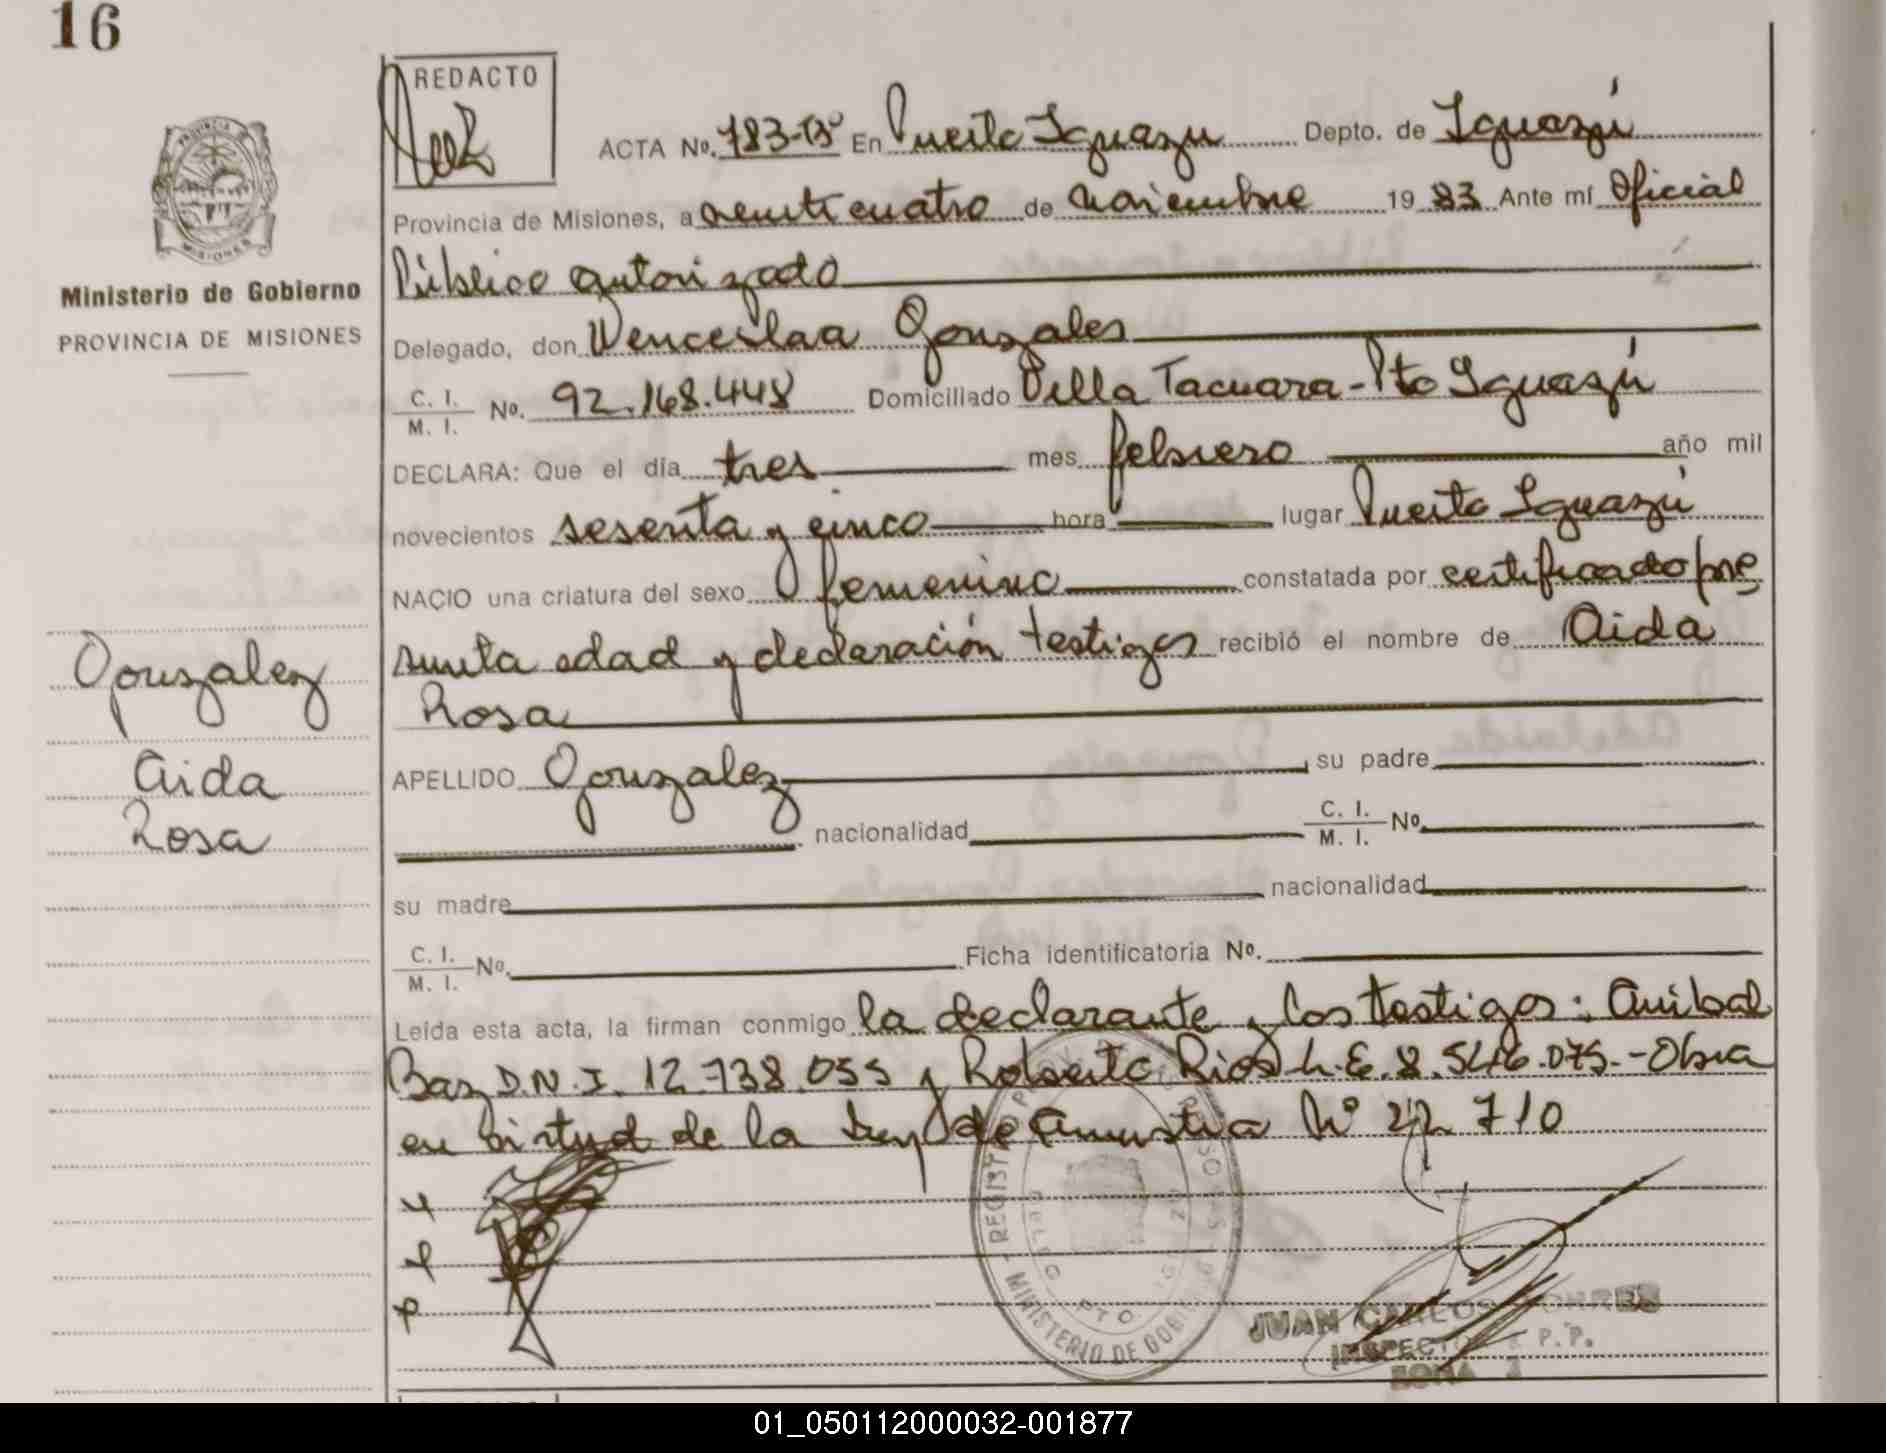 16
REDACTO
ACTA Nº. 783-Bº En Puerto Iguazu Depto. de Iguazú
Provincia de Misiones, a veinticuatro de noviembre 19 83 Ante mí Oficial
Público autorizado
Ministerio de Gobierno
PROVINCIA DE MISIONES
Delegado, don Wenceslaa Gonzales
C. I.
M. I. No. 92.168.448 Domiciliado Villa Tacuara - Pto Iguazú
DECLARA: Que el día tres mes febrero año mil
novecientos sesenta y cinco hora lugar Puerto Iguazú
NACIO una criatura del sexo femenino constatada por certificado pre
sunta edad y declaración testigos recibió el nombre de Aida
Rosa
Gonzalez
Aida
Rosa
APELLIDO Gonzalez su padre
nacionalidad C. I.
M. I. No.
su madre nacionalidad
C. I.
M. I. No. Ficha identificatoria Nº.
Leída esta acta, la firman conmigo la declarante y los testigos: Anibal
Baz D.N.I. 12.738.055 y Roberto Rios L.E. 8.546.075.- Obra
en virtud de la Ley de Amnistia Nº 22.710
MINISTERIO DE GOBI
JUAN CARLOS TORRES
INSPECTOR P.P.
ZONA 1
01_050112000032-001877